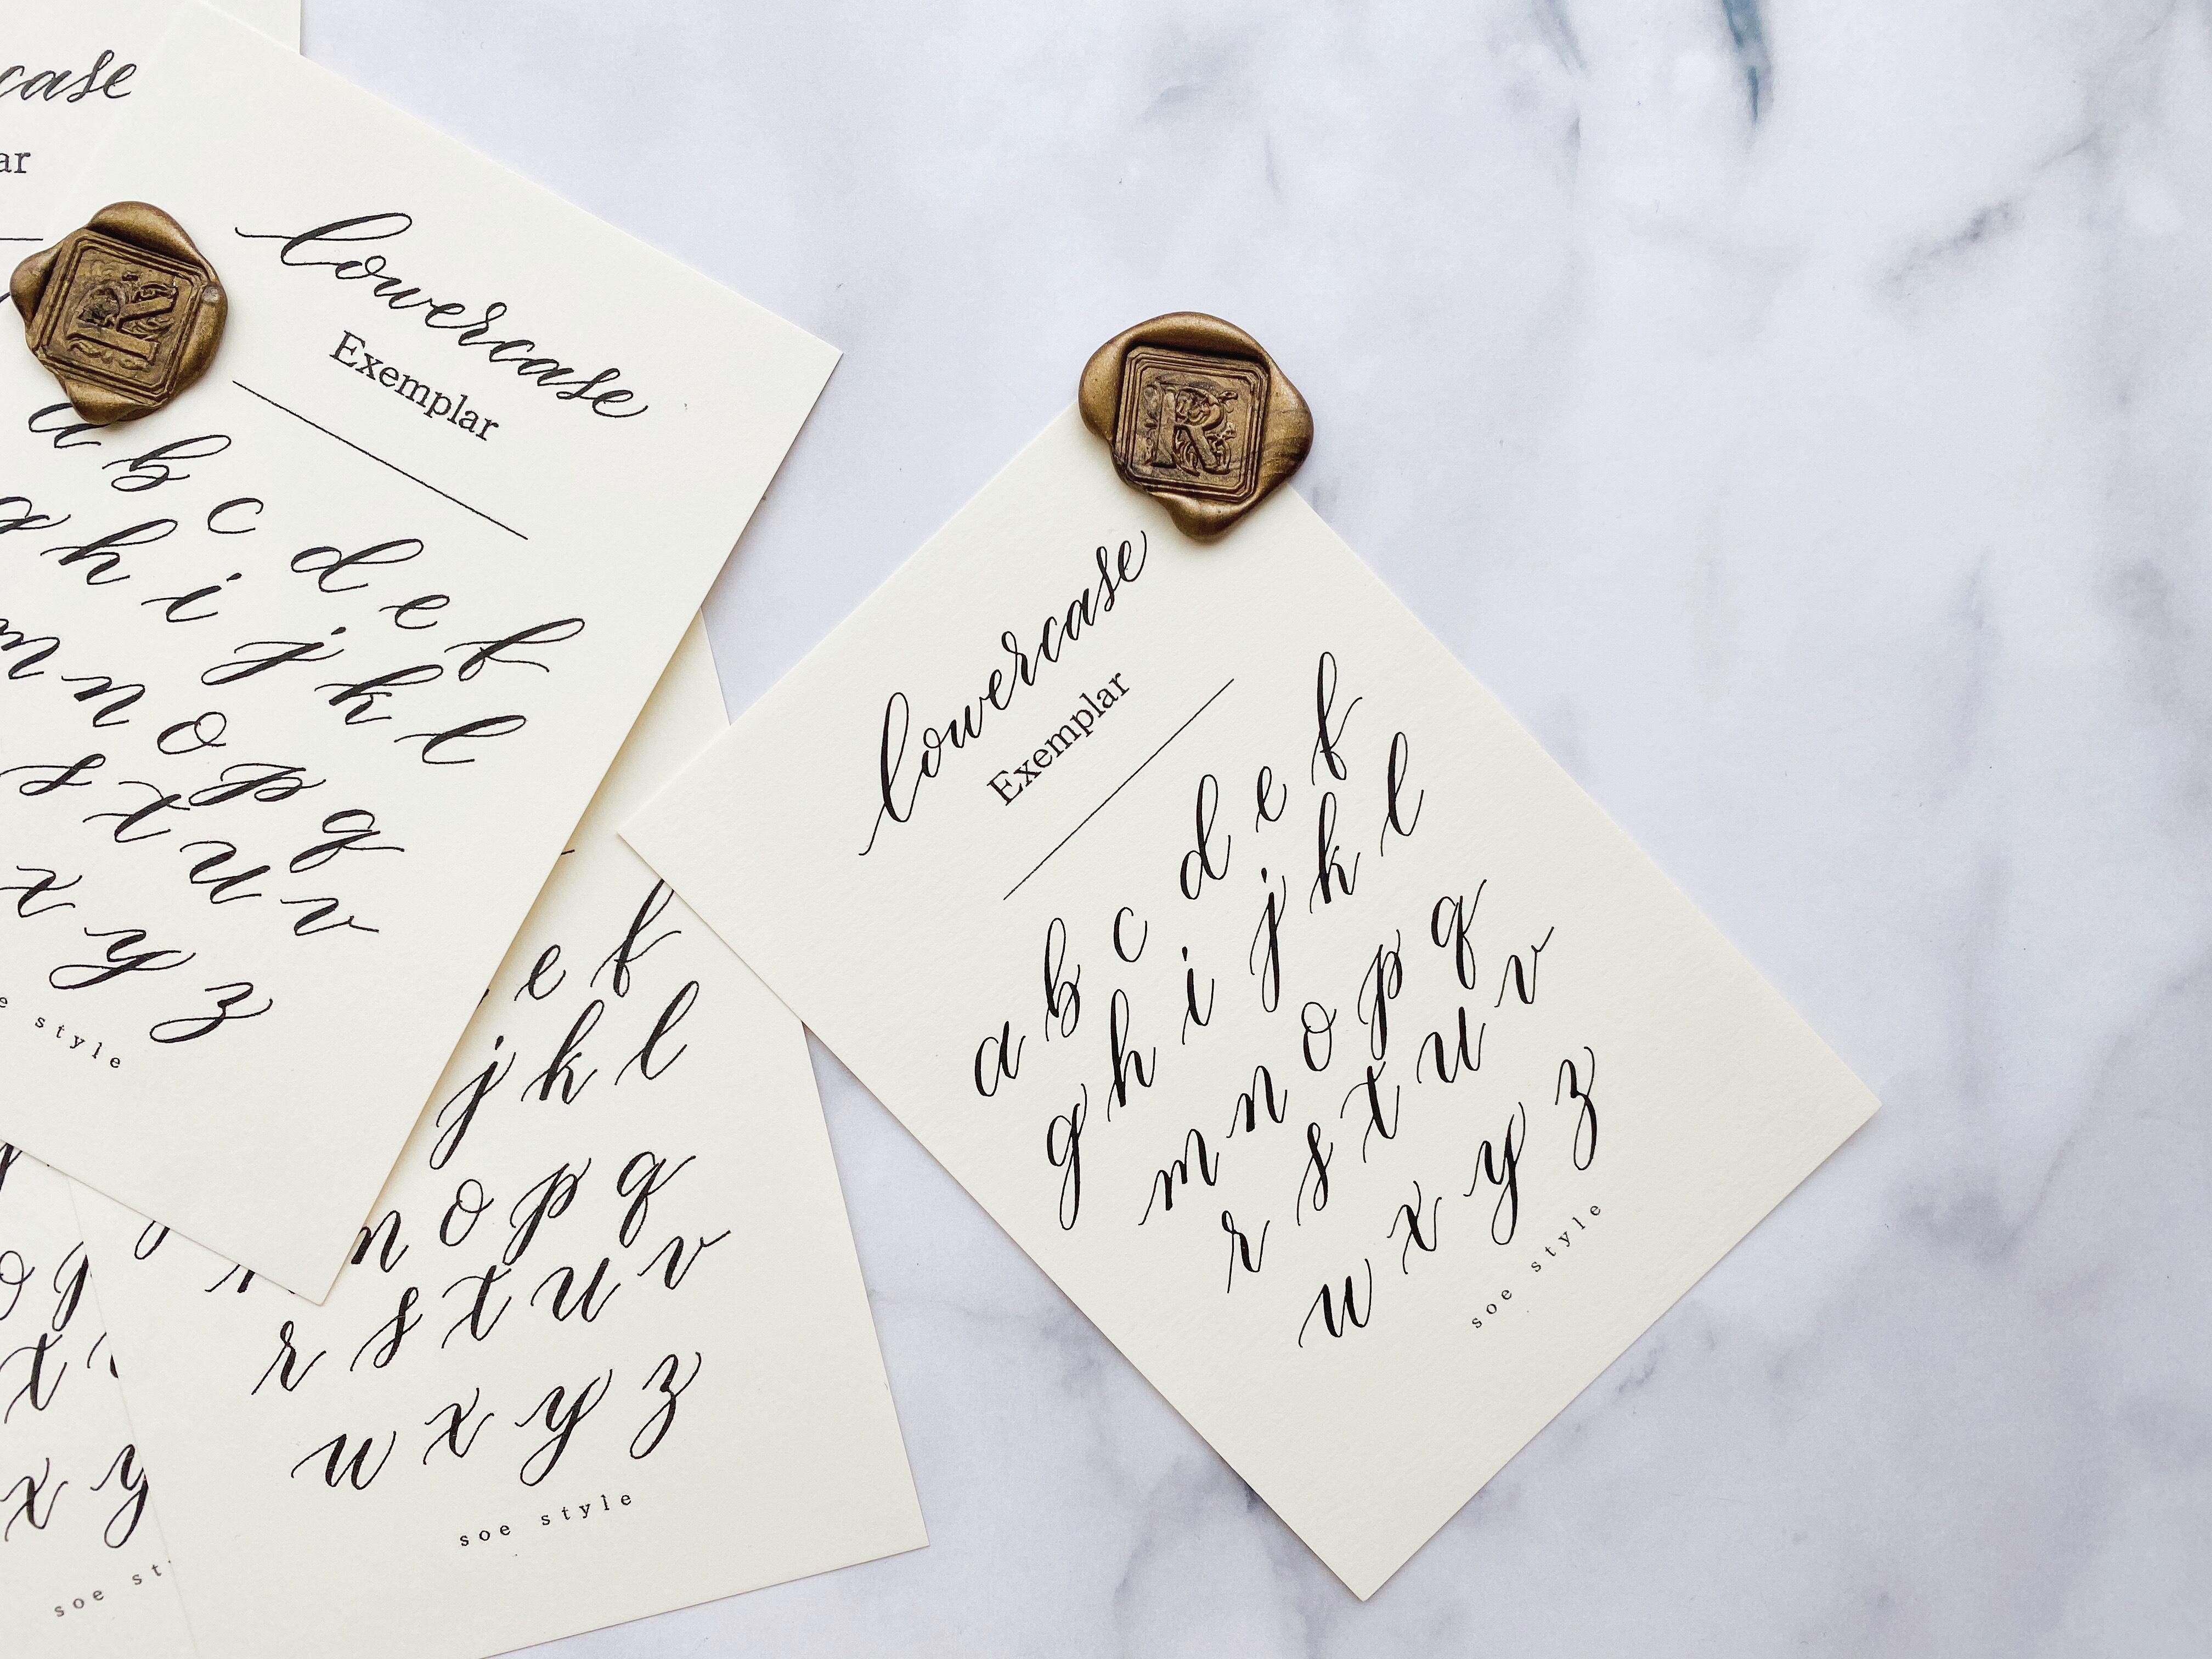 case
ar
lowercase
Exemplar
a b c d e f
g h i j k l
m n o p q
s t u v
x y z
e style
R
R
lowercase
Exemplar
a b c d e f
g h i j k l
m n o p q
r s t u v
w x y z
soe style
e f
j k l
n o p q
r s t u v
w x y z
soe style
o p
t
x y
soe st